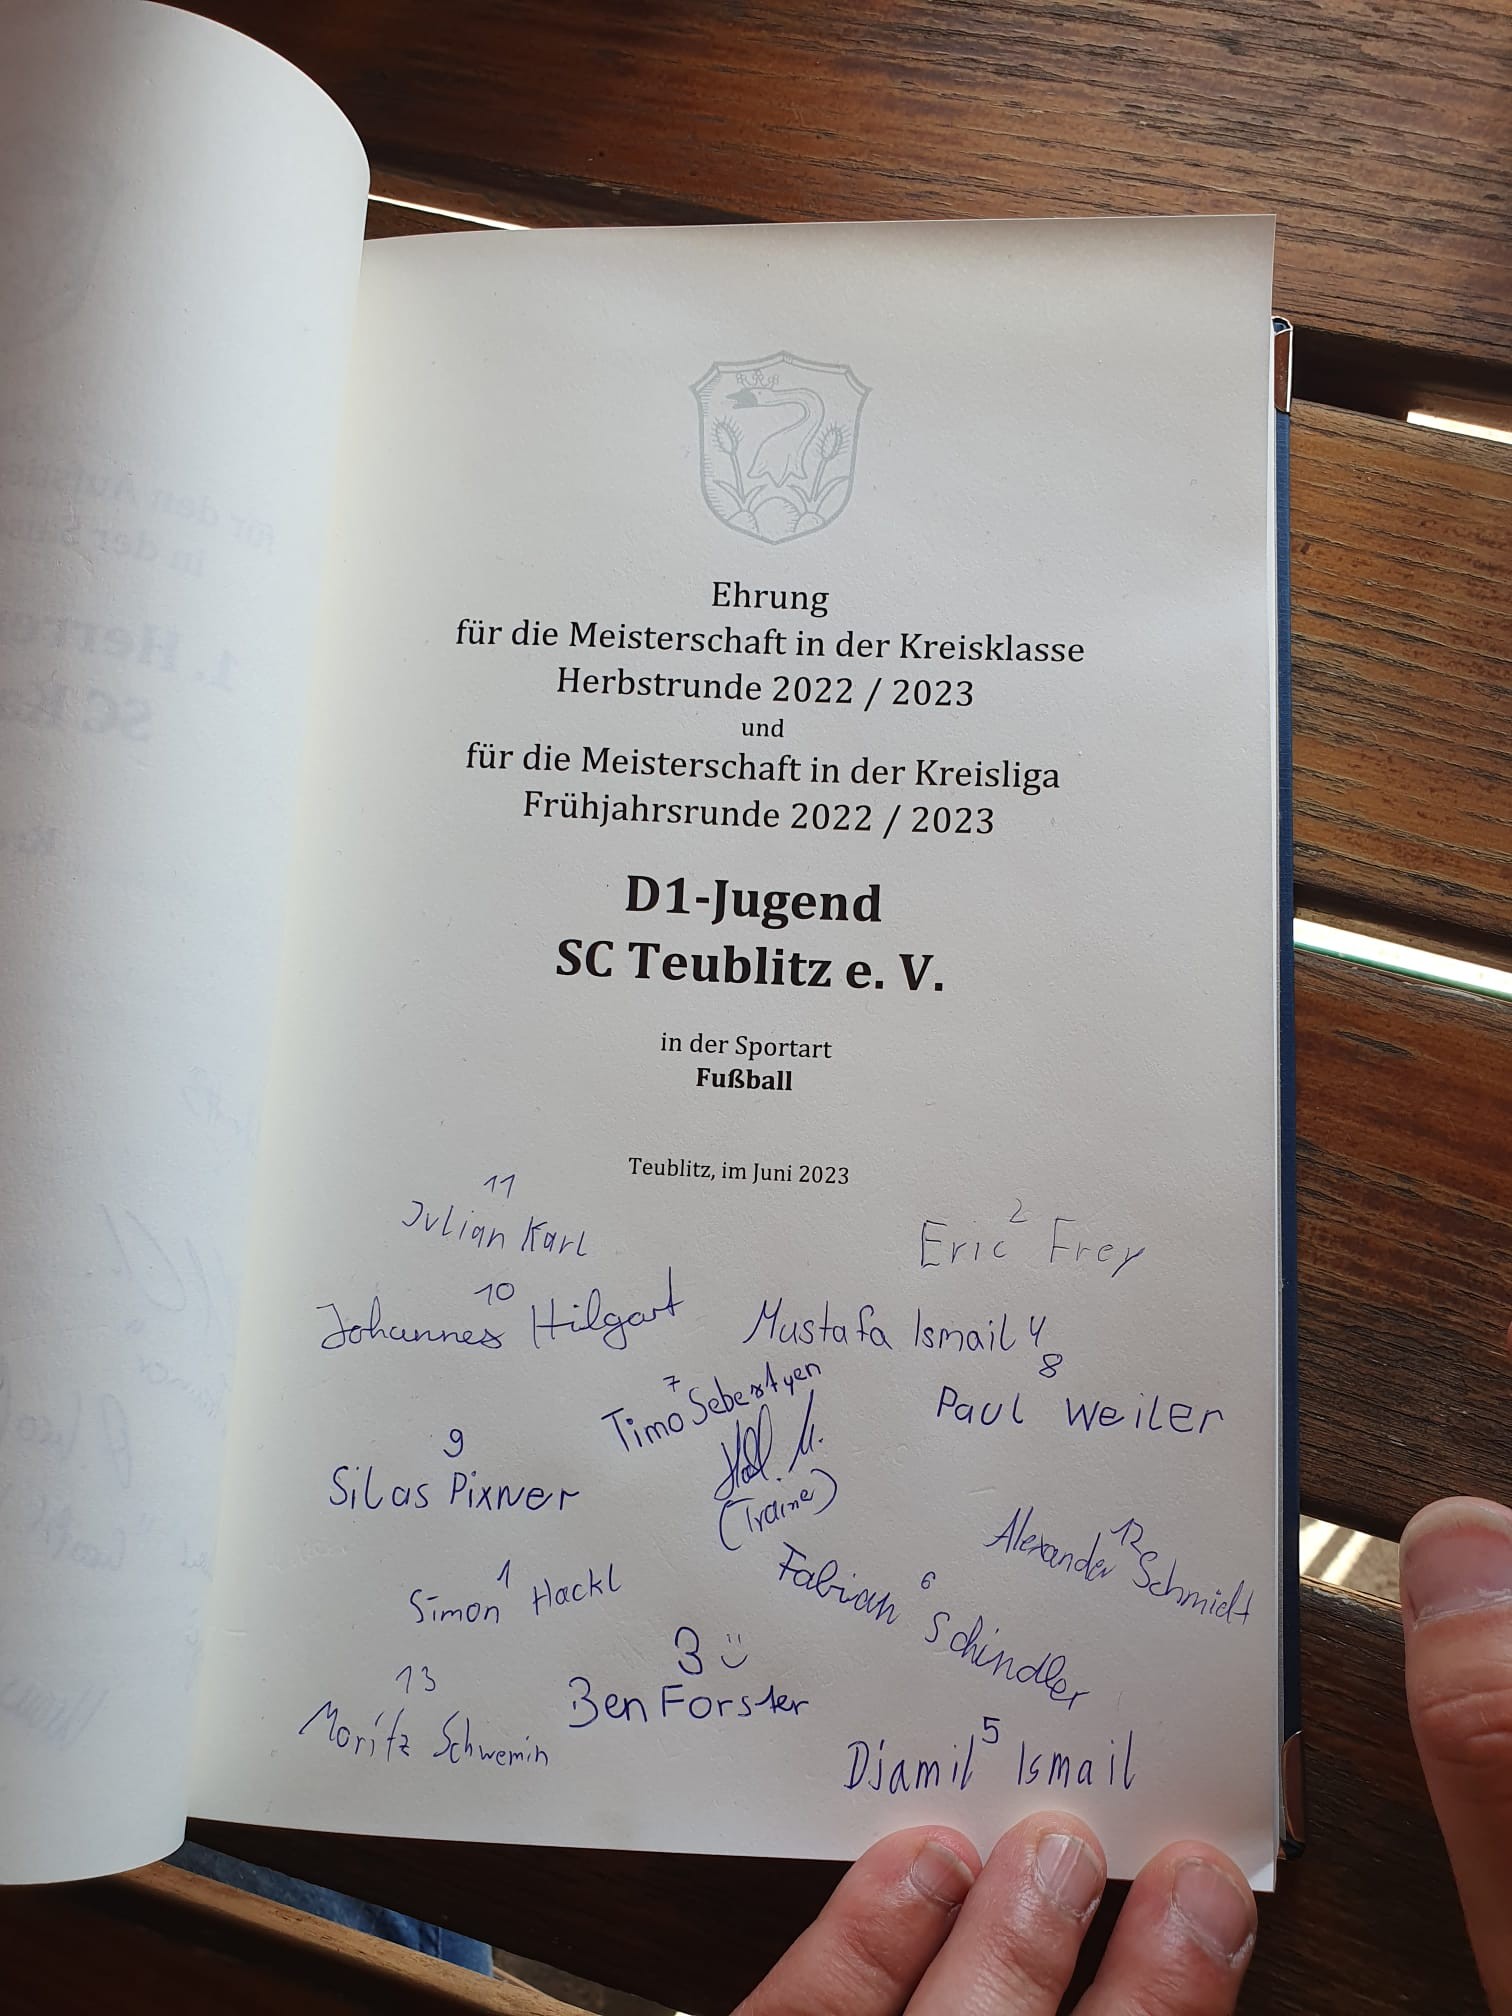 Ehrung
für die Meisterschaft in der Kreisklasse
Herbstrunde 2022 / 2023
und
für die Meisterschaft in der Kreisliga
Frühjahrsrunde 2022 / 2023
D1-Jugend
SC Teublitz e. V.
in der Sportart
Fußball
Teublitz, im Juni 2023
11
Julian Karl
2
Eric Frey
10
Johannes Hilgart
Mustafa Ismail 4
7
Timo Sebestyen
8
Paul Weiler
9
Silas Pixner
(Trainer)
12
Alexander Schmidt
1
Simon Hackl
6
Fabian Schindler
3 :)
Ben Forster
13
Moritz Schwemin
5
Djamil Ismail
für den
in der
1. Herre
SC